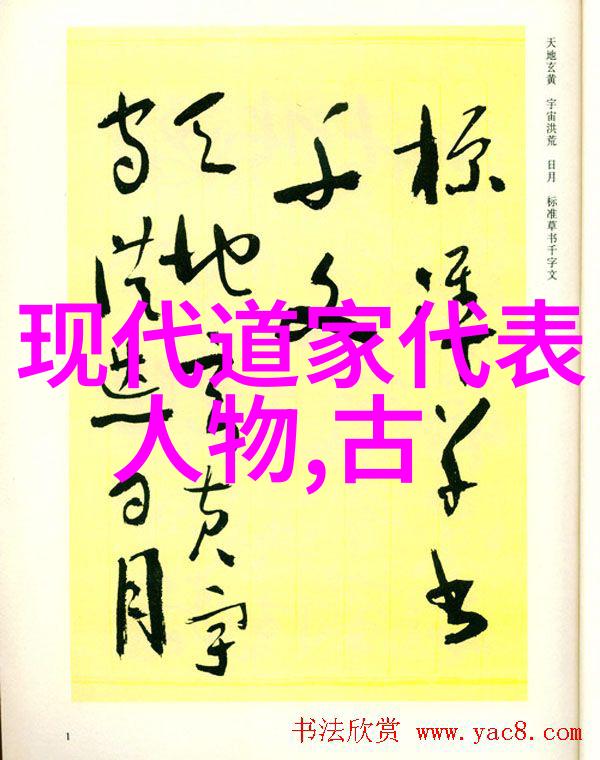 天地玄黄 宇宙洪荒 日月 标准草书千字文
标准草书
千文
天地玄黄宇
宙洪荒日月
现代道家代表
人物,古
1
书法欣赏 www.yac8.com